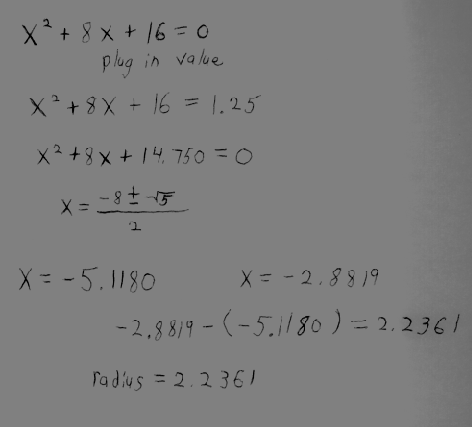 x² + 8x + 16 = 0
plug in value
x² + 8x + 16 = 1.25
x² + 8x + 14.750 = 0
x = (-8 ± √5) / 2
x = -5.1180 x = -2.8819
-2.8819 - (-5.1180) = 2.2361
radius = 2.2361